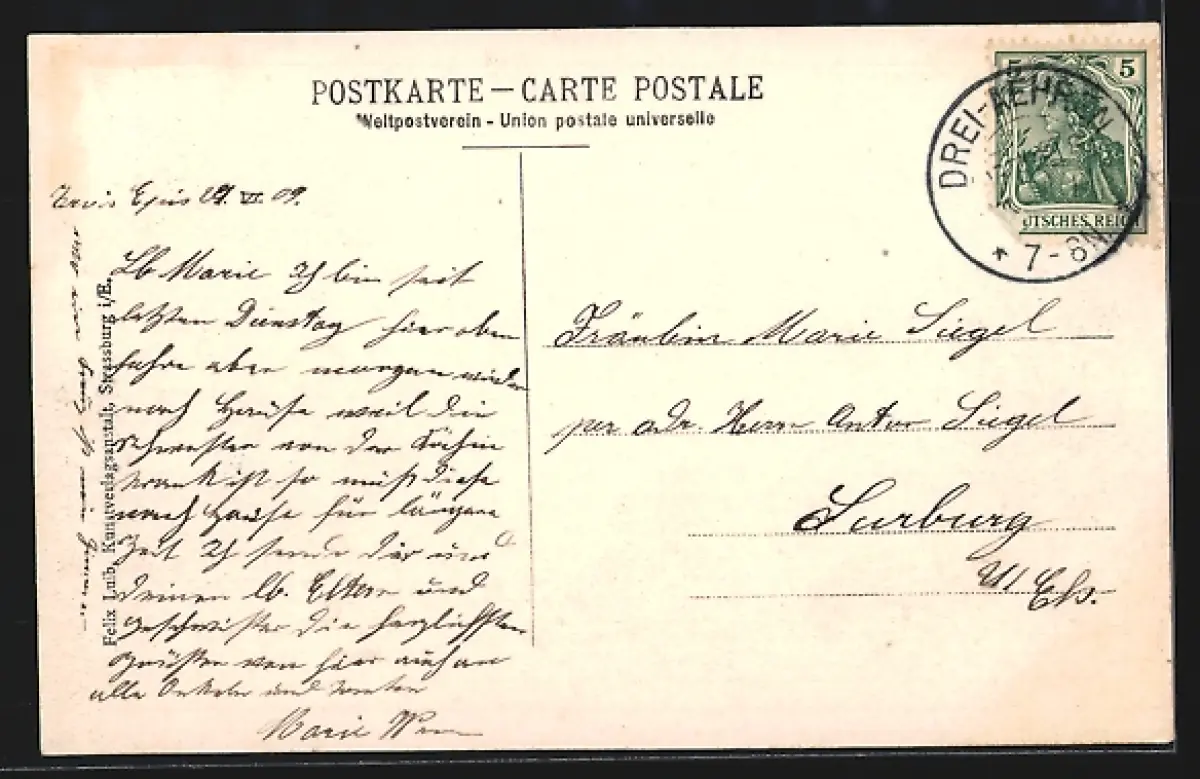 POSTKARTE — CARTE POSTALE
Weltpostverein - Union postale universelle
5 5
DEUTSCHES REICH
DREI-AEHREN
* 7-8N.
Trois Epis 29. VI. 09.
Lb Marie Ich bin seit
letzten Dienstag hier oben
fahre aber morgen wieder
nach Hause weil die
Schwester von der Köchin
krank ist so muß diese
nach Hause für längere
Zeit Ich sende Dir und
Deinen lb. Eltern und
Geschwister die herzlichsten
Grüßen von hier auch an
alle Onkeln und Tanten
Marie
Fräulein Marie Siegel
per adr. Herrn Anton Siegel
Surburg
U/ Els.
Felix Luib, Kunstverlagsanstalt, Strassburg i/E.